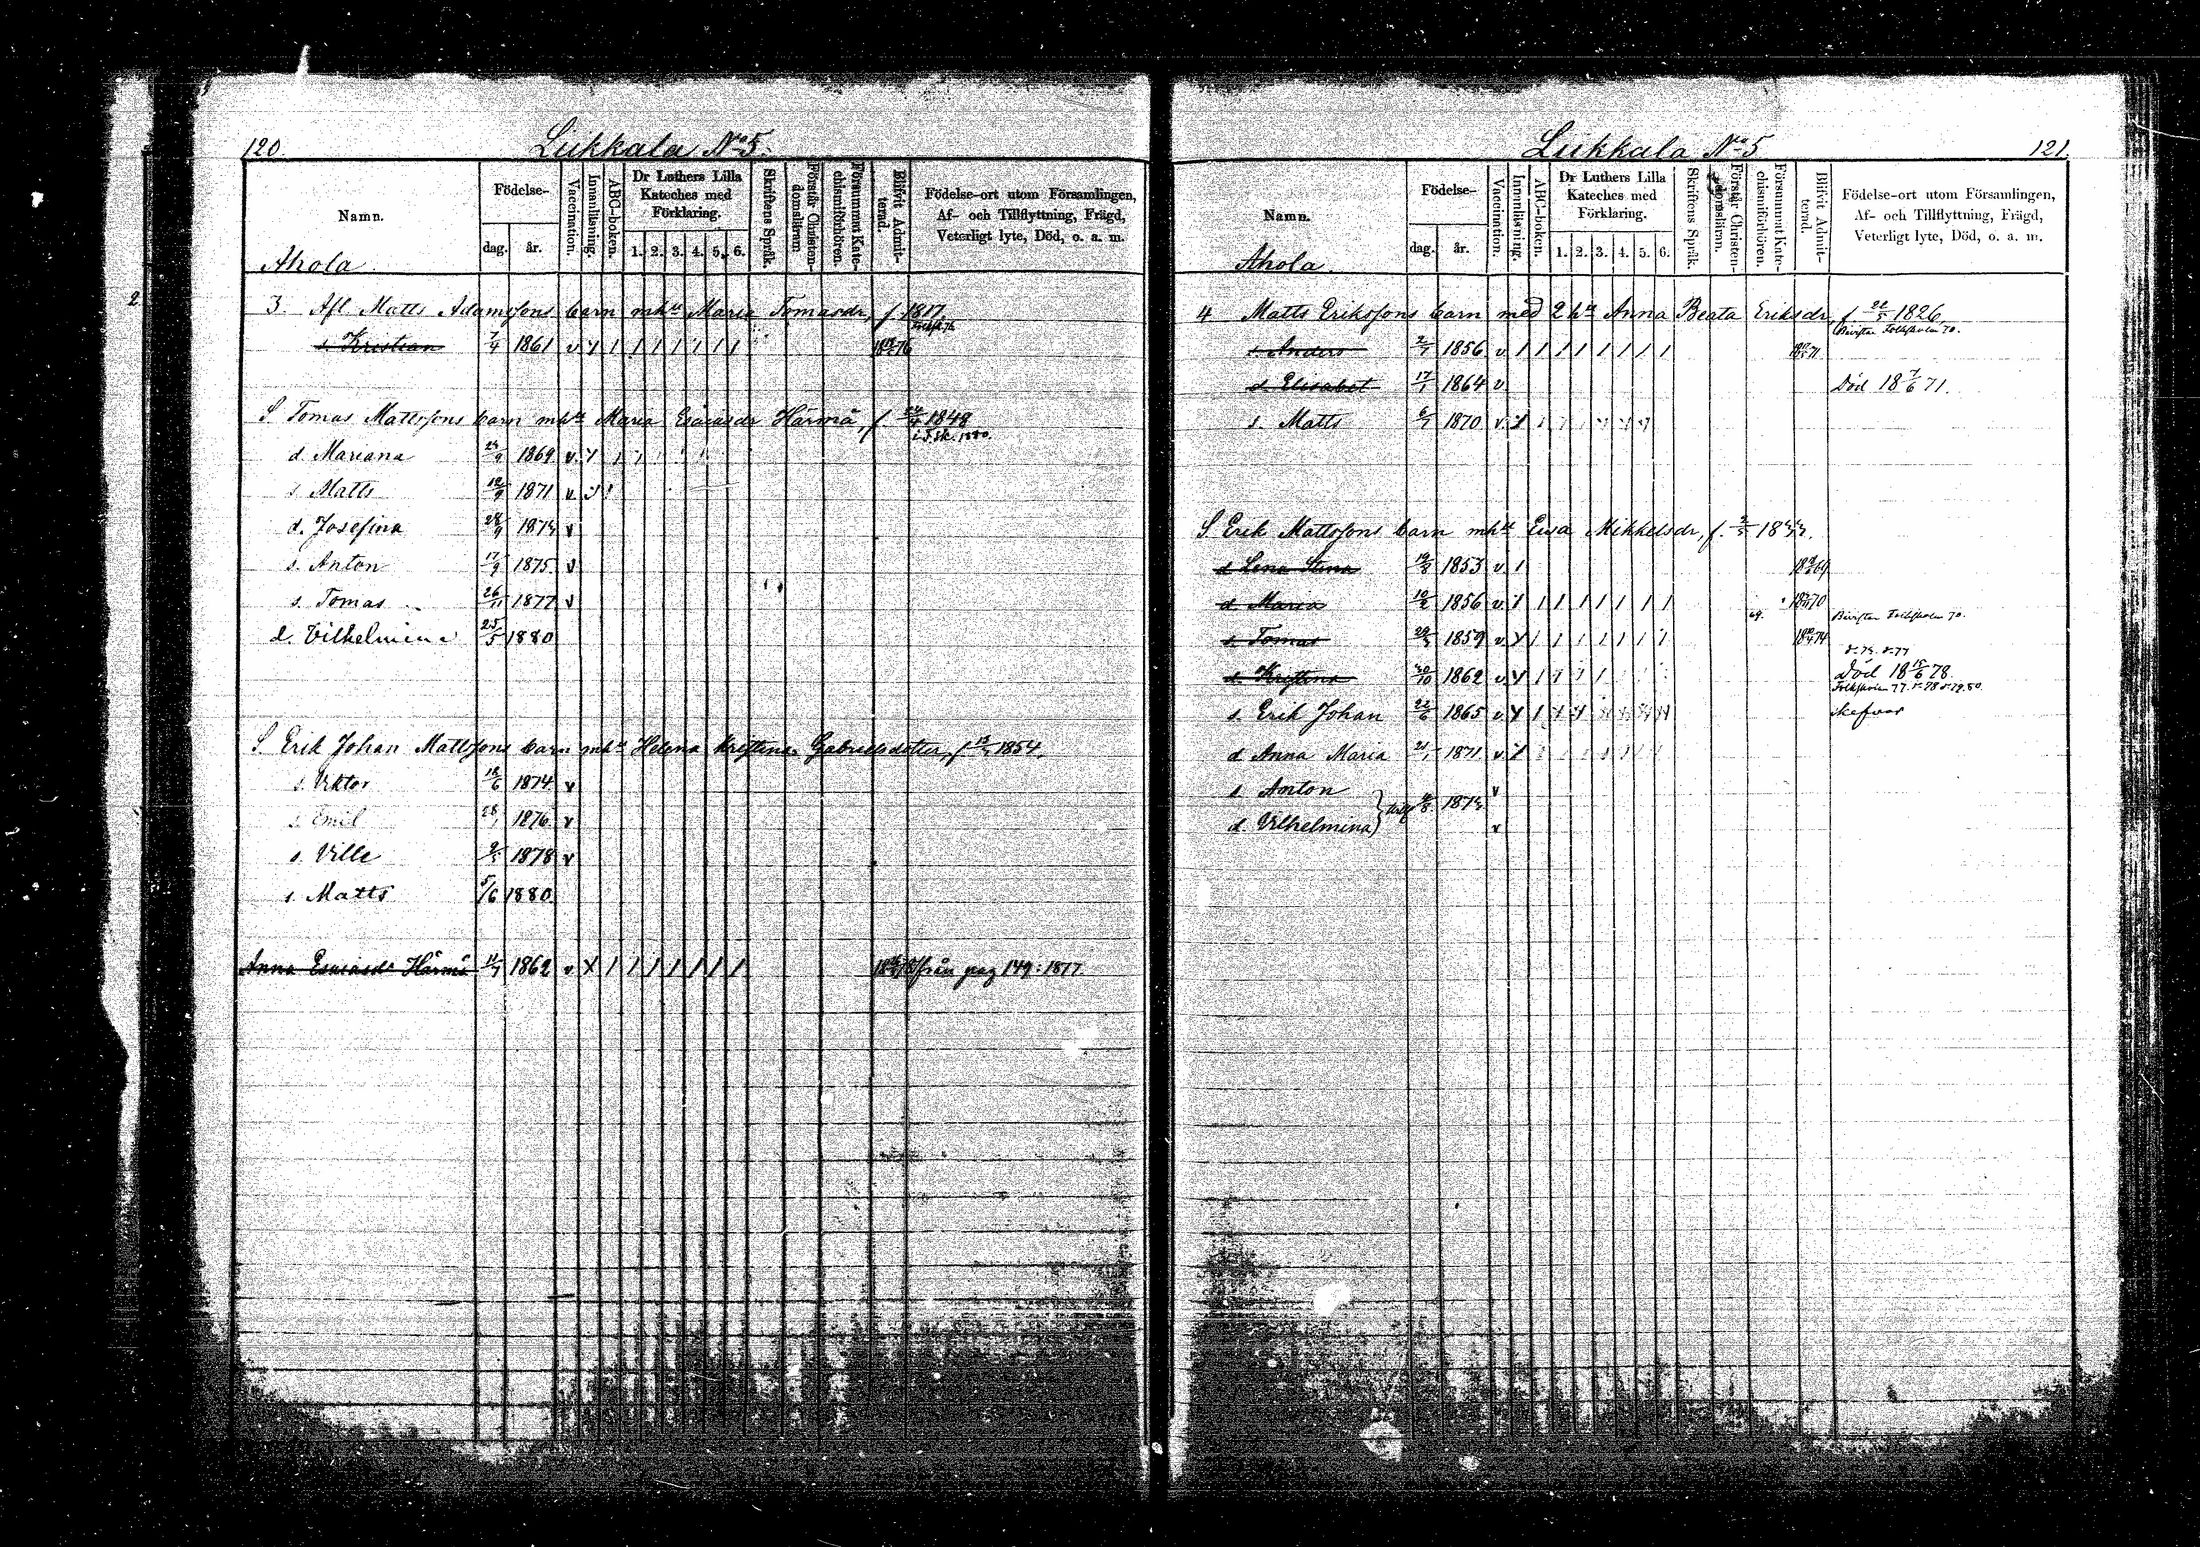 120. Liikkala No 5.
Namn. Födelse- dag. år. Vaccination. Innanläsning. ABC-boken. Dr Luthers Lilla Kateches med Förklaring. 1. 2. 3. 4. 5. 6. Skriftens Språk. Förstår Christendomsläran. Försummat Katechismiförhören. Blifvit Admitterad. Födelse-ort utom Församlingen, Af- och Tillflyttning, Frägd, Veterligt lyte, Död, o. a. m.
Ahola
3. Afl Matts Adamssons barn mhu Maria Tomasdr, f 1817.
s. Kristian 7/4 1861 v
S Tomas Mattssons barn mhu Maria Esaiasdr Härmä, f. 1848
i F.sk. 1880.
d Mariana 24/9 1869 v.
s. Matts 12/9 1871 v
d. Josefina 28/9 1873 v
s. Anton 17/9 1875. v
s. Tomas 26/11 1877 v
d. Vilhelmina 25/5 1880
S Erik Johan Mattssons barn mhu Helena Kristina Gabrielsdotter, f 1854.
s. Viktor 18/6 1874 v
s Emil 1876. v
s. Ville 1878 v
s. Matts 5/6 1880
Anna Esaiasdr Härmä 1862 v från pag 149: 1877
Liikkala No 5 121.
Namn. Födelse- dag. år. Vaccination. Innanläsning. ABC-boken. Dr Luthers Lilla Kateches med Förklaring. 1. 2. 3. 4. 5. 6. Skriftens Språk. Förstår Christendomsläran. Försummat Katechismiförhören. Blifvit Admitterad. Födelse-ort utom Församlingen, Af- och Tillflyttning, Frägd, Veterligt lyte, Död, o. a. m.
Ahola.
4 Matts Erikssons barn med 2 hu Anna Beata Eriksdr, f 22/5 1826
Bevistar Folkskolan 70.
s. Anders 2/1 1856 v
d. Elisabet 17/1 1864 v Död 18 7/6 71.
s. Matts 6/1 1870 v.
S. Erik Mattssons barn mhu Lisa Mikkelsdr, f.
d Lena Stina 19/8 1853 v.
d. Maria 10/2 1856 v. 69.
Bevistar Folkskolan 70.
s. Tomas 1859 v.
d. Kristina 30/10 1862 v. Död 18 15/6 78.
s. Erik Johan 22/6 1865 v.
d Anna Maria 21/1 1871 v.
s. Anton v
d. Vilhelmina 1873 v